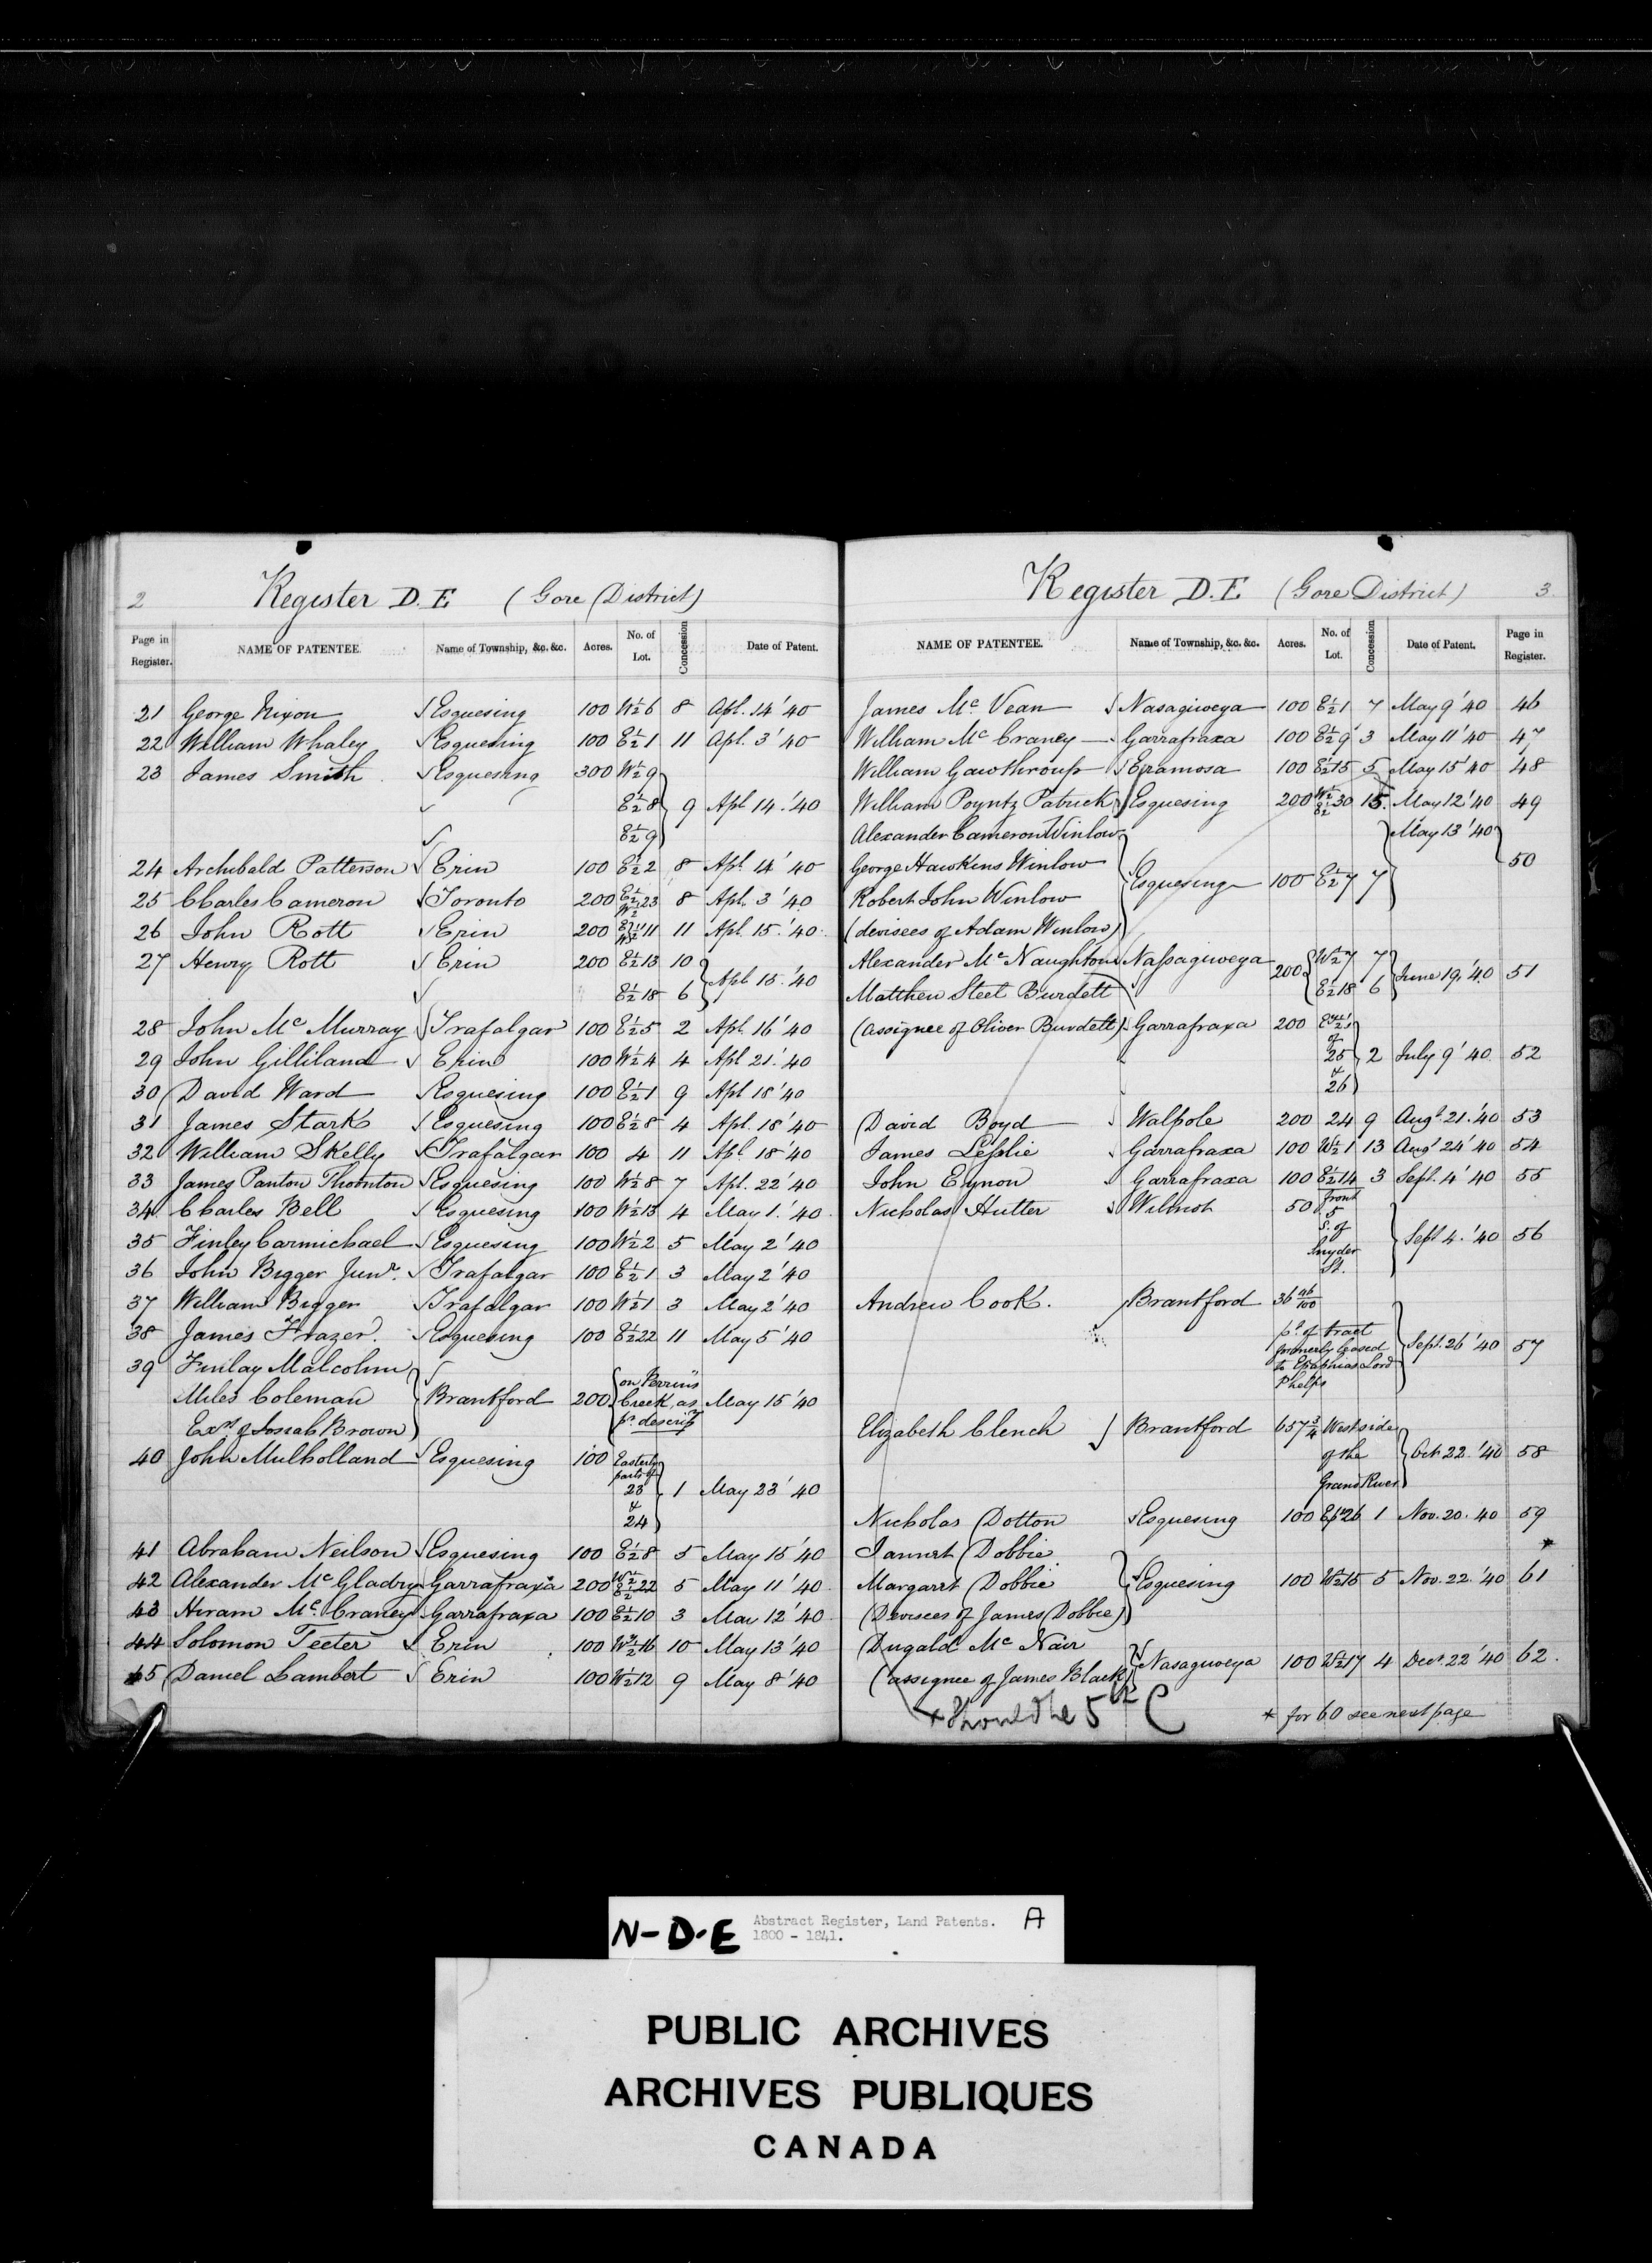 2 Register D.E (Gore District)
Page in Register. NAME OF PATENTEE. Name of Township, &c. &c. Acres. No. of Lot. Concession Date of Patent.
21 George Nixon Esquesing 100 W½ 6 8 Apl. 14 '40
22 William Whaley Esquesing 100 E½ 1 11 Apl. 3 '40
23 James Smith Esquesing 300 W½ 9
E½ 8 9 Apl 14 '40
E½ 9
24 Archibald Patterson Erin 100 E½ 2 8 Apl 14 '40
25 Charles Cameron Toronto 200 E½ W½ 23 8 Apl. 3 '40
26 John Rott Erin 200 E½ W½ 11 11 Apl. 15 '40
27 Henry Rott Erin 200 E½ 13 10
E½ 18 6 Apl 15 '40
28 John Mc Murray Trafalgar 100 E½ 5 2 Apl. 16 '40
29 John Gilliland Erin 100 W½ 4 4 Apl 21 '40
30 David Ward Esquesing 100 E½ 1 9 Apl 18 '40
31 James Stark Esquesing 100 E½ 8 4 Apl. 18 '40
32 William Skelly Trafalgar 100 4 11 Apl 18 '40
33 James Panton Thornton Esquesing 100 W½ 8 7 Apl. 22 '40
34 Charles Bell Esquesing 100 W½ 13 4 May 1. '40
35 Finley Carmichael Esquesing 100 W½ 2 5 May 2 '40
36 John Bigger Junr. Trafalgar 100 E½ 1 3 May 2 '40
37 William Bigger Trafalgar 100 W½ 1 3 May 2 '40
38 James Frazer. Esquesing 100 E½ 22 11 May 5 '40
39 Finlay Malcolm
Miles Coleman Brantford 200 on Perrin's Creek, as pr. descrip May 15 '40
Exrs of Josiah Brown
40 John Mulholland Esquesing 100 Easterly
parts of
23 1 May 23 '40
&
24
41 Abraham Neilson Esquesing 100 E½ 8 5 May 15 '40
42 Alexander Mc Gladry Garrafraxa 200 W½ E½ 22 5 May 11 '40
43 Hiram Mc Craney Garrafraxa 100 E½ 10 3 Mar 12 '40
44 Solomon Teeter Erin 100 W½ 16 10 May 13 '40
45 Daniel Lambert Erin 100 W½ 12 9 May 8 '40
Register D.E (Gore District) 3
NAME OF PATENTEE. Name of Township, &c. &c. Acres. No. of Lot. Concession Date of Patent. Page in Register.
James Mc Vean Nasagiweya 100 E½ 1 7 May 9 '40 46
William Mc Craney Garrafraxa 100 E½ 9 3 May 11 '40 47
William Gawthroup Eramosa 100 E½ 15 5 May 15 '40 48
William Poyntz Patrick Esquesing 200 W½ E½ 30 May 12 '40 49
Alexander Cameron Winlow May 13 '40
George Hawkins Winlow 50
Robert John Winlow Esquesing 100 E½ 7 7
(devisees of Adam Winlow)
Alexander Mc Naughton Nassagiweya 200 W½ 7 7
E½ 18 6 June 19, '40 51
Matthew Steet Burdett
(assignee of Oliver Burdett) Garrafraxa 200 E½s
of
25 2 July 9 '40 52
&
26
David Boyd Walpole 200 24 9 Augt. 21. '40 53
James Lesslie Garrafraxa 100 W½ 1 13 Augt 24 '40 54
John Eynon Garrafraxa 100 E½ 14 3 Sept. 4 '40 55
Nicholas Hutter Wilmot 50 front
5
S. of Sept 4. '40 56
Snyder
St.
Andrew Cook. Brantford 36 46/100
pt. of tract
formerly leased Sept. 26 '40 57
to Epaphias Lord
Phelps
Elizabeth Clench Brantford 657¾ West side
of the Oct 22. '40 58
Grand River
Nicholas Dotton Esquesing 100 26 1 Nov. 20. 40 59
*
Jannet Dobbie
Margaret Dobbie Esquesing 100 W½ 15 5 Nov. 22. '40 61
(Devisees of James Dobbie)
Dugald Mc Nair
(assignee of James Black) Nasagiweya 100 W½ 17 4 Decr. 22 '40 62.
x Should be 5th C
* for 60 see next page
N-D-E Abstract Register, Land Patents. A
1800 - 1841.
PUBLIC ARCHIVES
ARCHIVES PUBLIQUES
CANADA